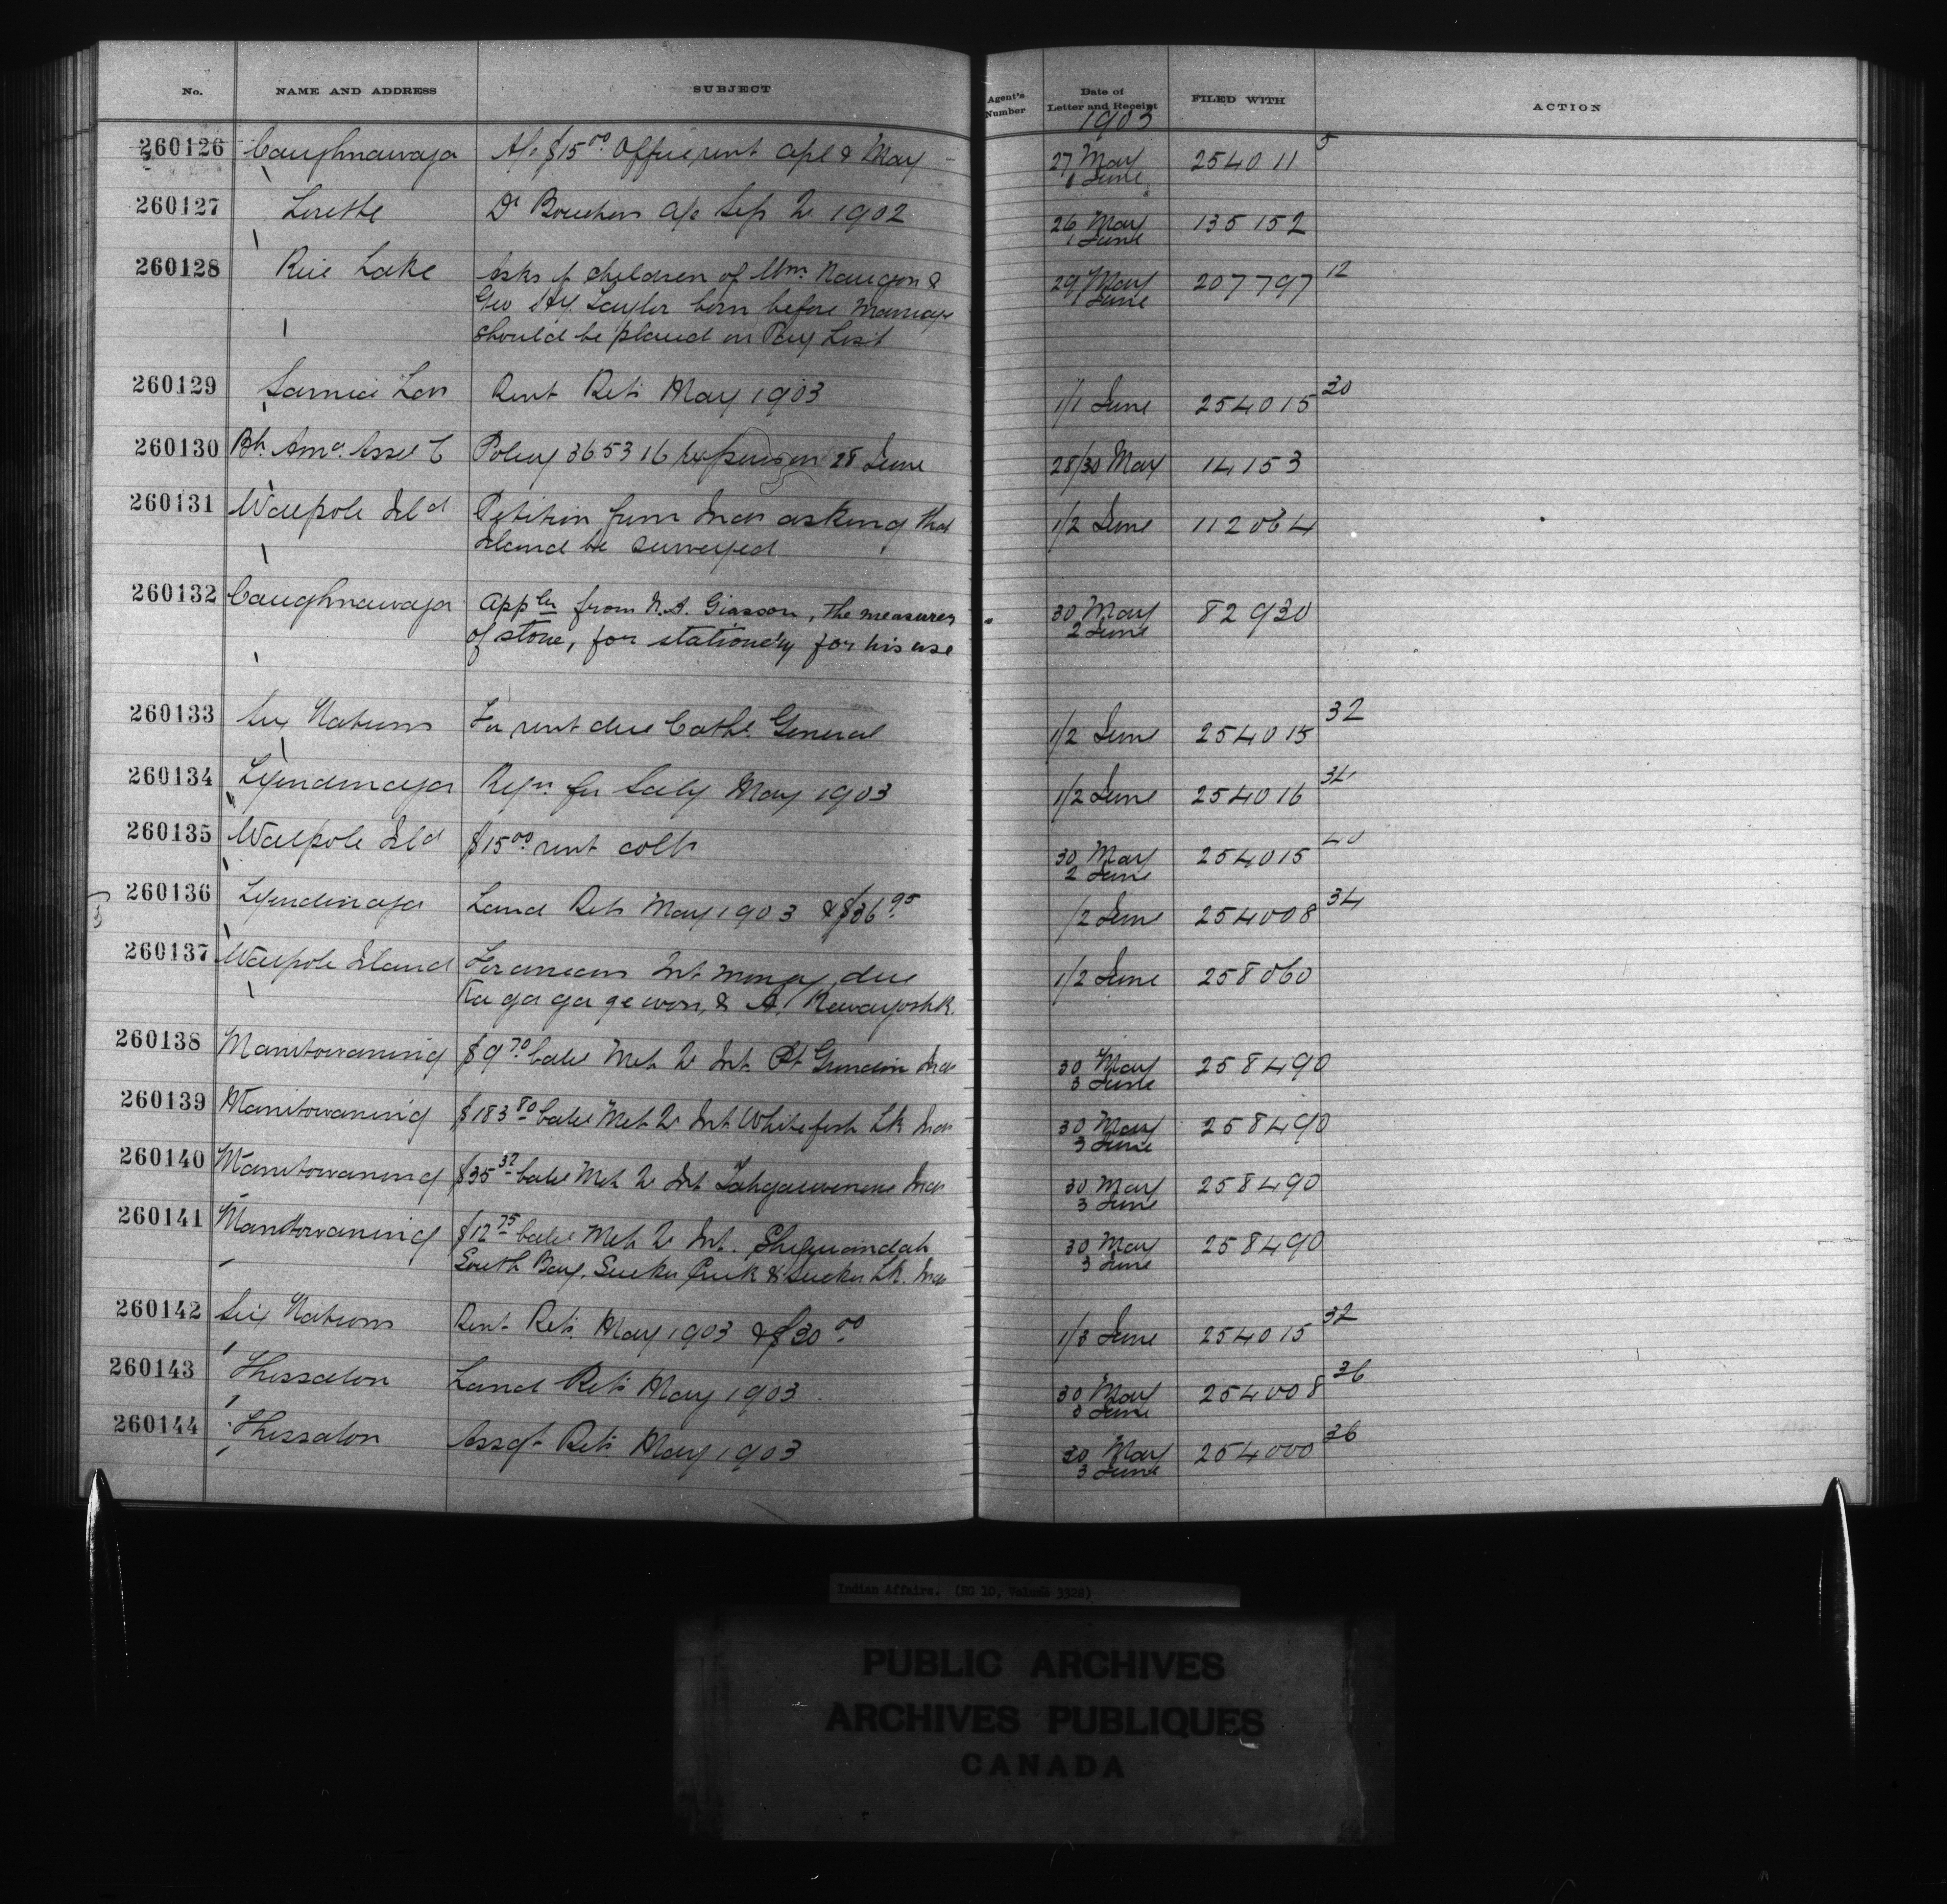 No. NAME AND ADDRESS SUBJECT Agent's Number Date of Letter and Receipt FILED WITH ACTION
1903
260126 Caughnawaga A/c $15.00 Office rent Apl & May 27 May 254011 5
1 June
260127 Lorette Dr a/c Sep Qr 1902 26 May 135152
1 June
260128 Rice Lake Asks if children of Wm. & 29 May 207797 12
Geo Hy. Taylor born before marriage 1 June
should be placed on Pay List
260129 Sarnia Lon Rent Retn May 1903 1/1 June 254015 30
260130 Bh. Ama. Asse C Policy 365316 expires on 28 June 28/30 May 14153
260131 Walpole Isld Petition from Inds asking that 1/2 June 112064
Island be surveyed
260132 Caughnawaga Appln from N.A. Giasson, the measurer 30 May 82930
of stone, for stationery for his use 2 June
260133 Six Nations For rent due Cath. General 1/2 June 254015 32
260134 Tyendinaga Reqn. for Saly May 1903 1/2 June 254016 34
260135 Walpole Isld $15.00 rent colln 30 May 254015 40
2 June
260136 Tyendinaga Land Retn May 1903 & $36.95 1/2 June 254008 34
260137 Walpole Island For arrears Int money due 1/2 June 258060
Ka ga ga ge won, & A.
260138 Manitowaning $9.70 balce Mch Qr Int. Pt Grondin Inds 30 May 258490
3 June
260139 Manitowaning $183.80 balce Mch Qr Int Whitefish Lk Inds 30 May 258490
3 June
260140 Manitowaning $35.32 balce Mch Qr Int Tahgaiwenene Inds 30 May 258490
3 June
260141 Manitowaning $12.75 balce Mch Qr Int. Sheguiandah 30 May 258490
South Bay, Sucker Creek & Sucker Lk. Inds 3 June
260142 Six Nations Rent Retn May 1903 & $30.00 1/3 June 254015 32
260143 Thessalon Land Retn May 1903 30 May 254008 36
3 June
260144 Thessalon Assgt Retn May 1903 30 May 254000 36
3 June
Indian Affairs. (RG 10, Volume 3328)
PUBLIC ARCHIVES
ARCHIVES PUBLIQUES
CANADA